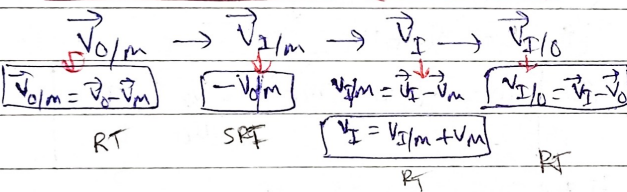 V⃗O/m → V⃗I/m → V⃗I → V⃗I/O
V⃗O/m = V⃗O - V⃗M   -VO/m   VI/M = V⃗I - V⃗M   VI/O = V⃗I - V⃗O
VI = VI/m + VM
RT   SPI   RT   RT